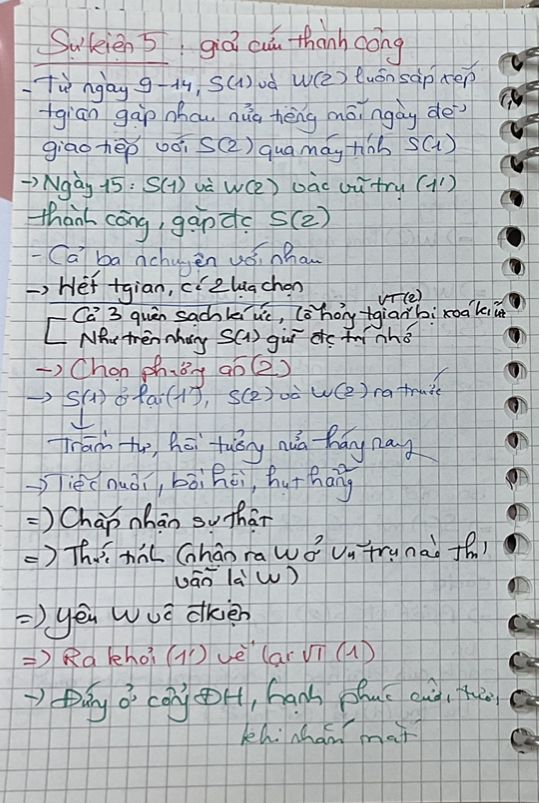 Sự kiện 5 : giải cứu thành công
- Từ ngày 9-14, S(1) và W(2) luôn sắp xếp
tgian gặp nhau nửa tiếng mỗi ngày để
giao tiếp với S(2) qua máy tính S(1)
-> Ngày 15 : S(1) và W(2) vào vũ trụ (1')
thành công, gặp đc S(2)
- Cả ba nchuyện với nhau
-> Hết tgian, có 2 lựa chọn
Cả 3 quên sạch kí ức, lỗ hổng tgian bị xoá kí ức
VT(2)
Như trên nhưng S(1) giữ đc trí nhớ
-> Chọn phương án (2)
-> S(1) ở lại (1'), S(2) và W(2) ra trước
Trầm tư, hồi tưởng nửa tháng nay
-> Tiếc nuối, bồi hồi, hụt hẫng
=> Chấp nhận sự thật
=> Thức tỉnh (nhận ra W ở vũ trụ nào thì
vẫn là W)
=> yêu W vô đkiện
=> Ra khỏi (1') về lại VT (1)
-> Đứng ở cổng ĐH, hạnh phúc cười
khi nhắm mắt